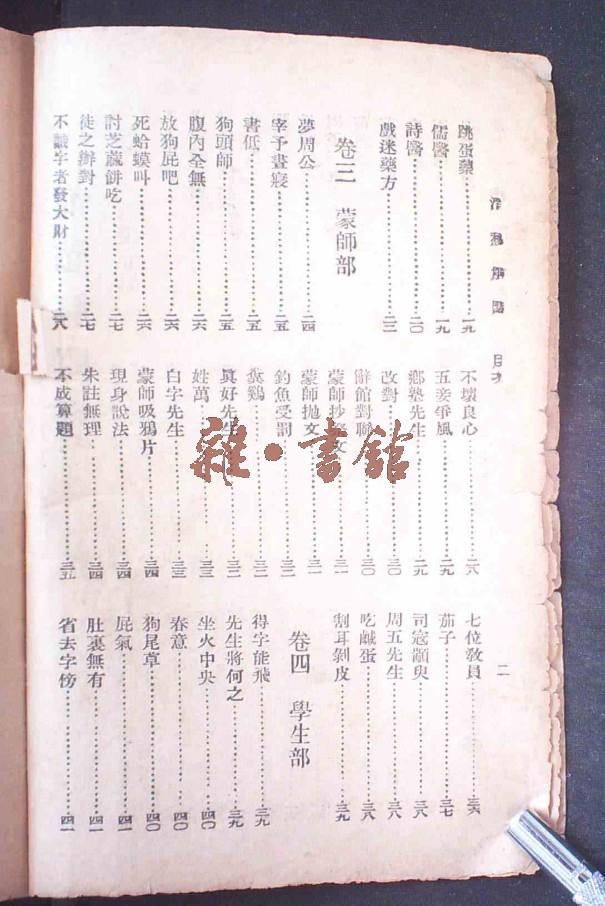 跳蛋藥……一九
儒醫……一九
詩醫……二〇
戲迷藥方……二三
卷三 蒙師部
夢周公……二四
宰予晝寢……二五
書低……二五
狗頭師……二五
腹內全無……二六
放狗屁吧……二六
死蛤蟆叫……二六
討芝蔴餅吃……二七
徒之辦對……二七
不識字者發大財……二八
不壞良心……二八
五妾爭風……二九
鄉塾先生……二九
改對……三〇
辭館對聯……三〇
蒙師抄 文……三一
蒙師拋文……三一
釣魚受罰……三二
糞鷄……三二
眞好先生……三二
姓萬……三三
白字先生……三三
蒙師吸鴉片……三四
現身說法……三四
朱註無理……三四
不成算題……三五
七位教員……三六
茄子……三七
司寇顓臾……三八
周五先生……三八
吃鹹蛋……三八
割耳剝皮……三九
卷四 學生部
得字能飛……三九
先生將何之……三九
坐火中央……四〇
春意……四〇
狗尾草……四〇
屁氣……四一
肚裏無有……四一
省去字傍……四一
二
雜·書館